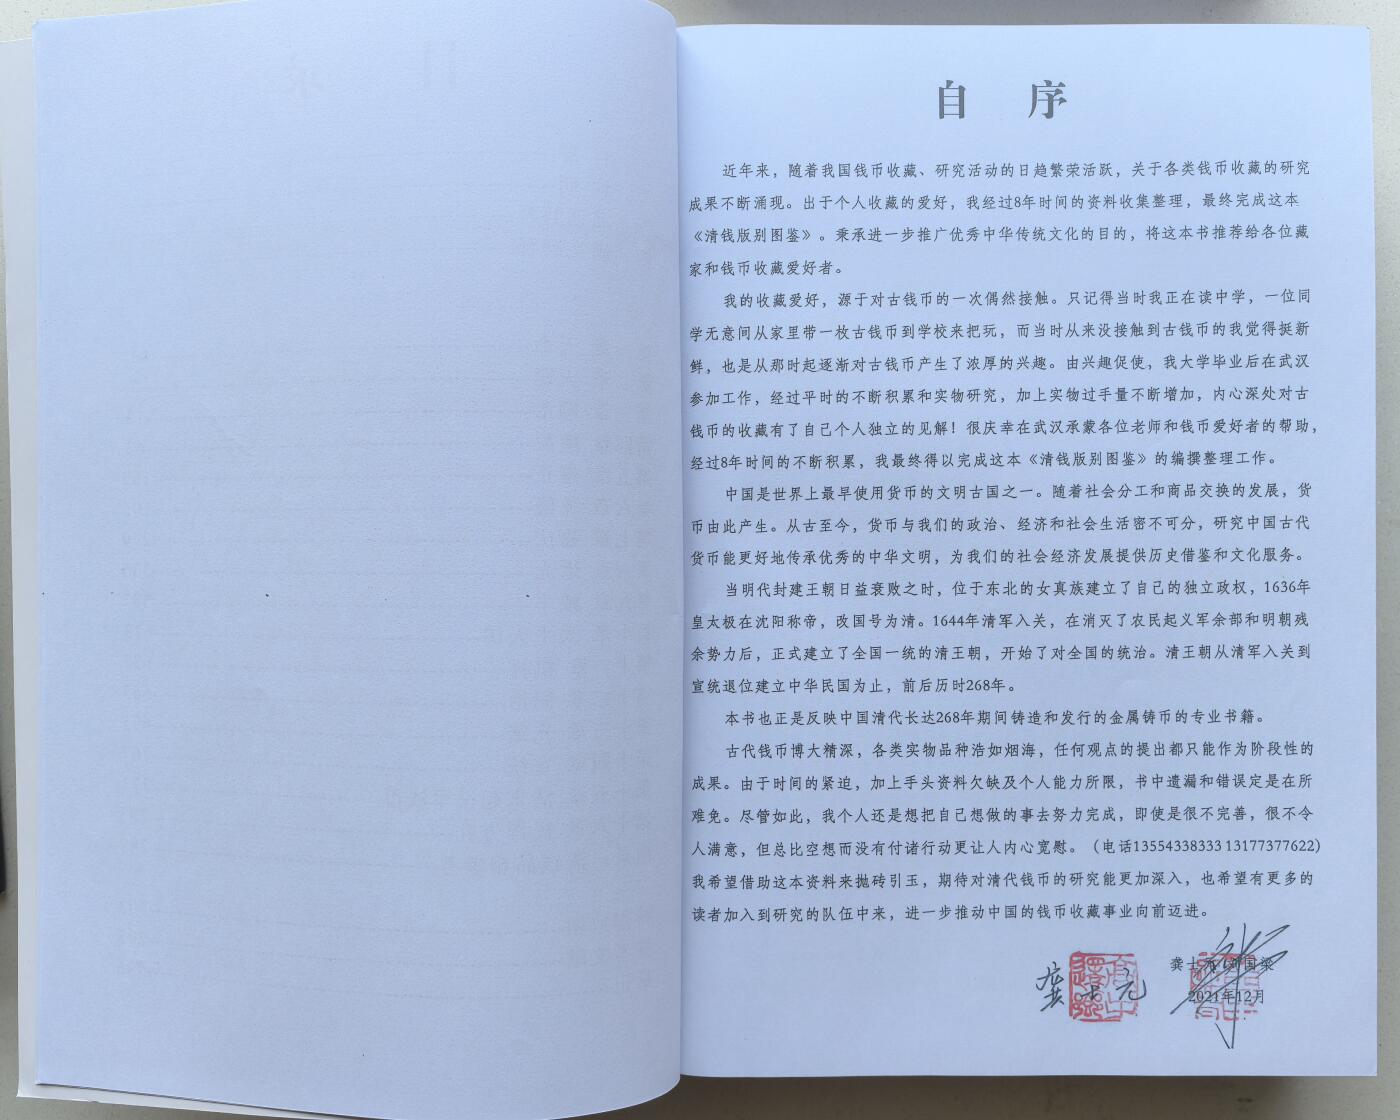 自 序
近年来，随着我国钱币收藏、研究活动的日趋繁荣活跃，关于各类钱币收藏的研究
成果不断涌现。出于个人收藏的爱好，我经过8年时间的资料收集整理，最终完成这本
《清钱版别图鉴》。秉承进一步推广优秀中华传统文化的目的，将这本书推荐给各位藏
家和钱币收藏爱好者。
我的收藏爱好，源于对古钱币的一次偶然接触。只记得当时我正在读中学，一位同
学无意间从家里带一枚古钱币到学校来把玩，而当时从来没接触到古钱币的我觉得挺新
鲜，也是从那时起逐渐对古钱币产生了浓厚的兴趣。由兴趣促使，我大学毕业后在武汉
参加工作，经过平时的不断积累和实物研究，加上实物过手量不断增加，内心深处对古
钱币的收藏有了自己个人独立的见解！很庆幸在武汉承蒙各位老师和钱币爱好者的帮助，
经过8年时间的不断积累，我最终得以完成这本《清钱版别图鉴》的编撰整理工作。
中国是世界上最早使用货币的文明古国之一。随着社会分工和商品交换的发展，货
币由此产生。从古至今，货币与我们的政治、经济和社会生活密不可分，研究中国古代
货币能更好地传承优秀的中华文明，为我们的社会经济发展提供历史借鉴和文化服务。
当明代封建王朝日益衰败之时，位于东北的女真族建立了自己的独立政权，1636年
皇太极在沈阳称帝，改国号为清。1644年清军入关，在消灭了农民起义军余部和明朝残
余势力后，正式建立了全国一统的清王朝，开始了对全国的统治。清王朝从清军入关到
宣统退位建立中华民国为止，前后历时268年。
本书也正是反映中国清代长达268年期间铸造和发行的金属铸币的专业书籍。
古代钱币博大精深，各类实物品种浩如烟海，任何观点的提出都只能作为阶段性的
成果。由于时间的紧迫，加上手头资料欠缺及个人能力所限，书中遗漏和错误定是在所
难免。尽管如此，我个人还是想把自己想做的事去努力完成，即使是很不完善，很不令
人满意，但总比空想而没有付诸行动更让人内心宽慰。（电话13554338333 13177377622)
我希望借助这本资料来抛砖引玉，期待对清代钱币的研究能更加深入，也希望有更多的
读者加入到研究的队伍中来，进一步推动中国的钱币收藏事业向前迈进。
龚士元 国梁
2021年12月
龚士元